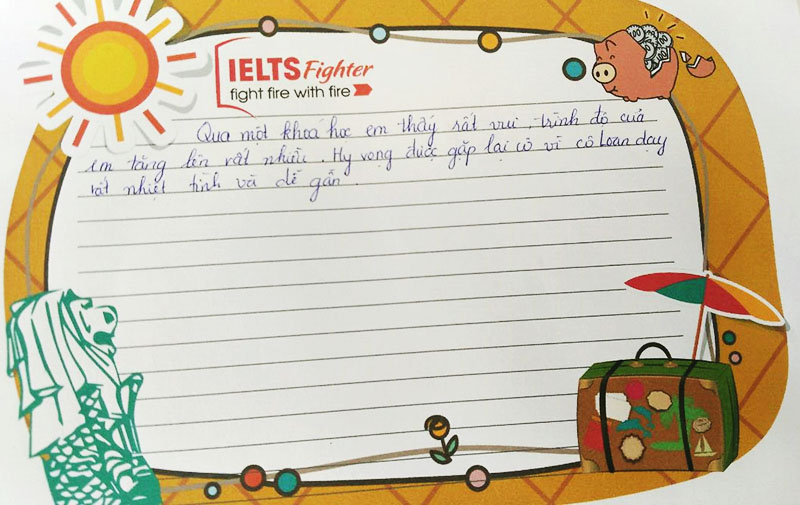 IELTS Fighter
fight fire with fire
Qua một khoá học em thấy rất vui, trình độ của
em tăng lên rất nhiều. Hy vọng được gặp lại cô vì cô Loan dạy
rất nhiệt tình và dễ gần.